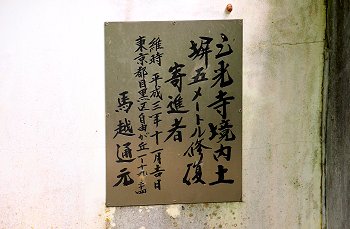 玄光寺境内土
塀五メートル修復
寄進者
維時 平成三年十一月吉日
東京都目黒区自由が丘一ー十九ー
馬越通元